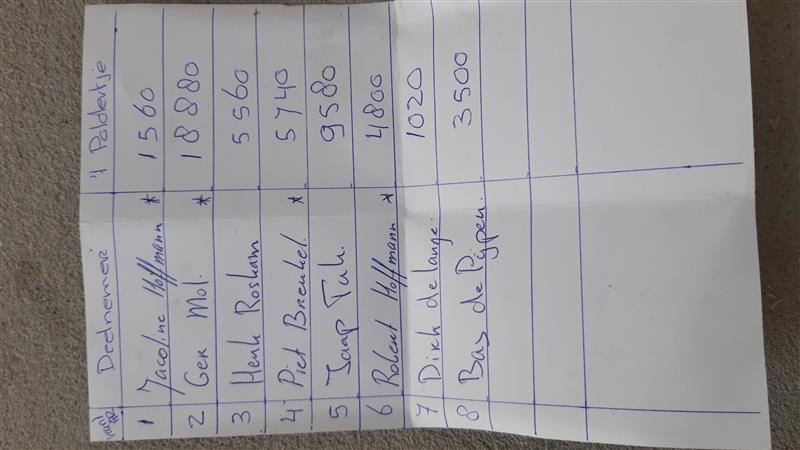 Deelnemer 't Poldertje
1 Jacoline Hoffmann * 1560
2 Ger Mol. * 18880
3 Henk Rosham 5560
4 Piet Breukel. * 5740
5 Jaap Tuh. 9580
6 Robert Hoffmann * 4800
7 Dirk de lange. 1020
8 Bas de Pijper. 3500